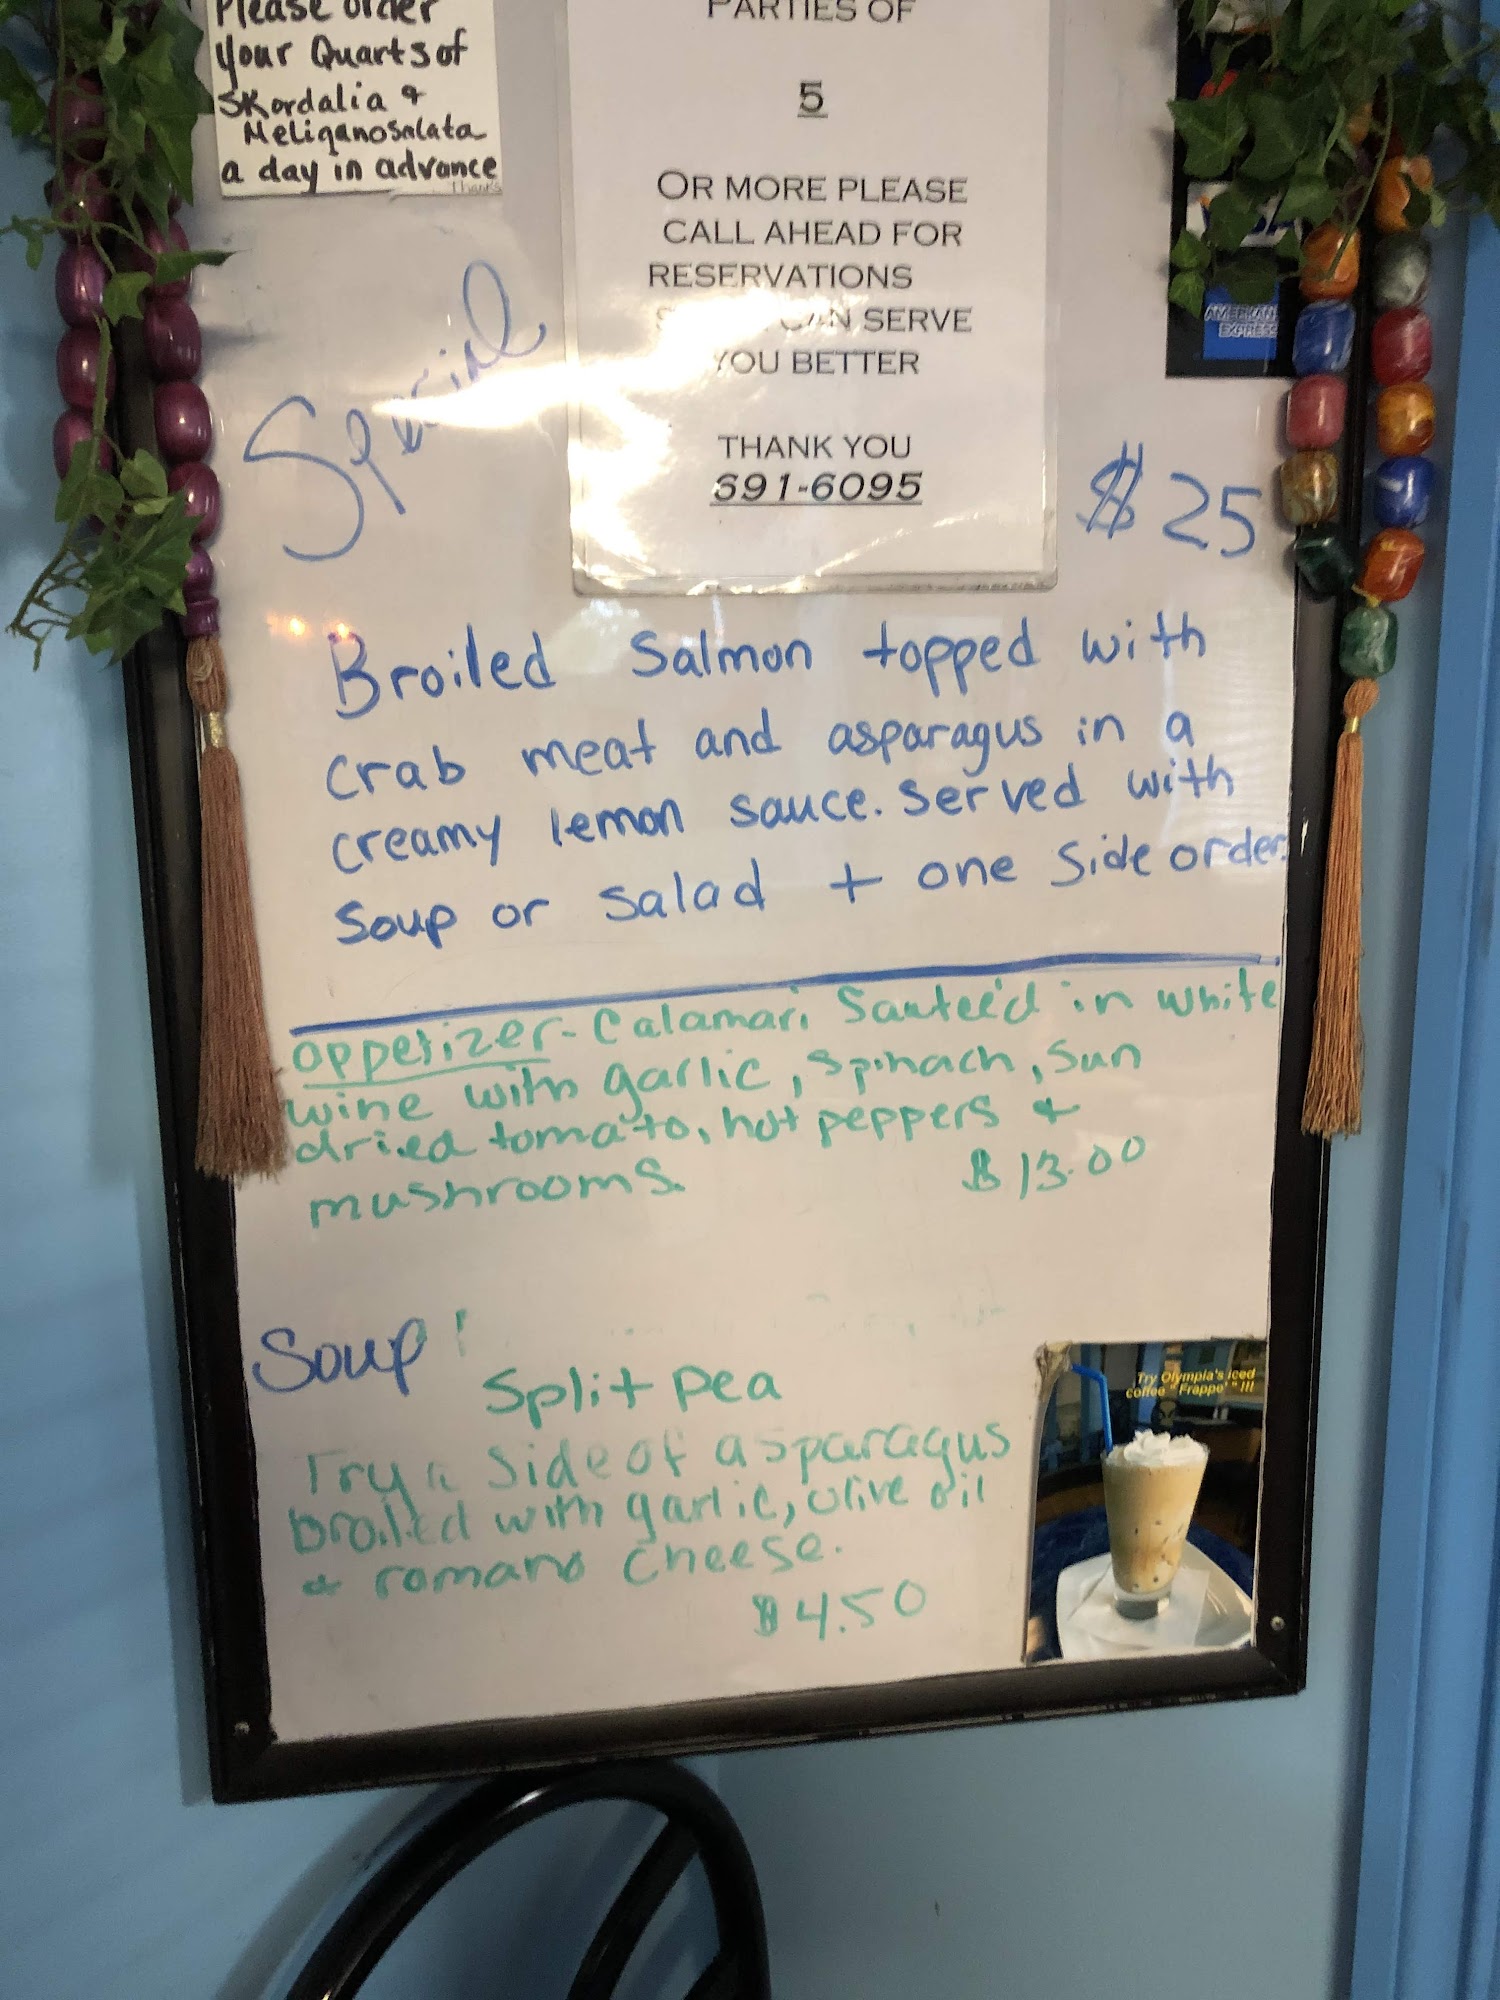 Please order
your Quarts of
Skordalia &
Meliganosalata
a day in advance
Thanks
PARTIES OF
5
OR MORE PLEASE
CALL AHEAD FOR
RESERVATIONS
CAN SERVE
YOU BETTER
THANK YOU
691-6095
AMERICAN
EXPRESS
Special
$25
Broiled Salmon topped with
crab meat and asparagus in a
creamy lemon sauce. Served with
soup or salad + one side order.
appetizer - Calamari Sautee'd in white
wine with garlic, spinach, sun
dried tomato, hot peppers &
mushrooms $13.00
Soup!
Split Pea
Try a side of asparagus
broiled with garlic, olive oil
& romano cheese.
$4.50
Try Olympia's iced
coffee "Frappe'" !!!